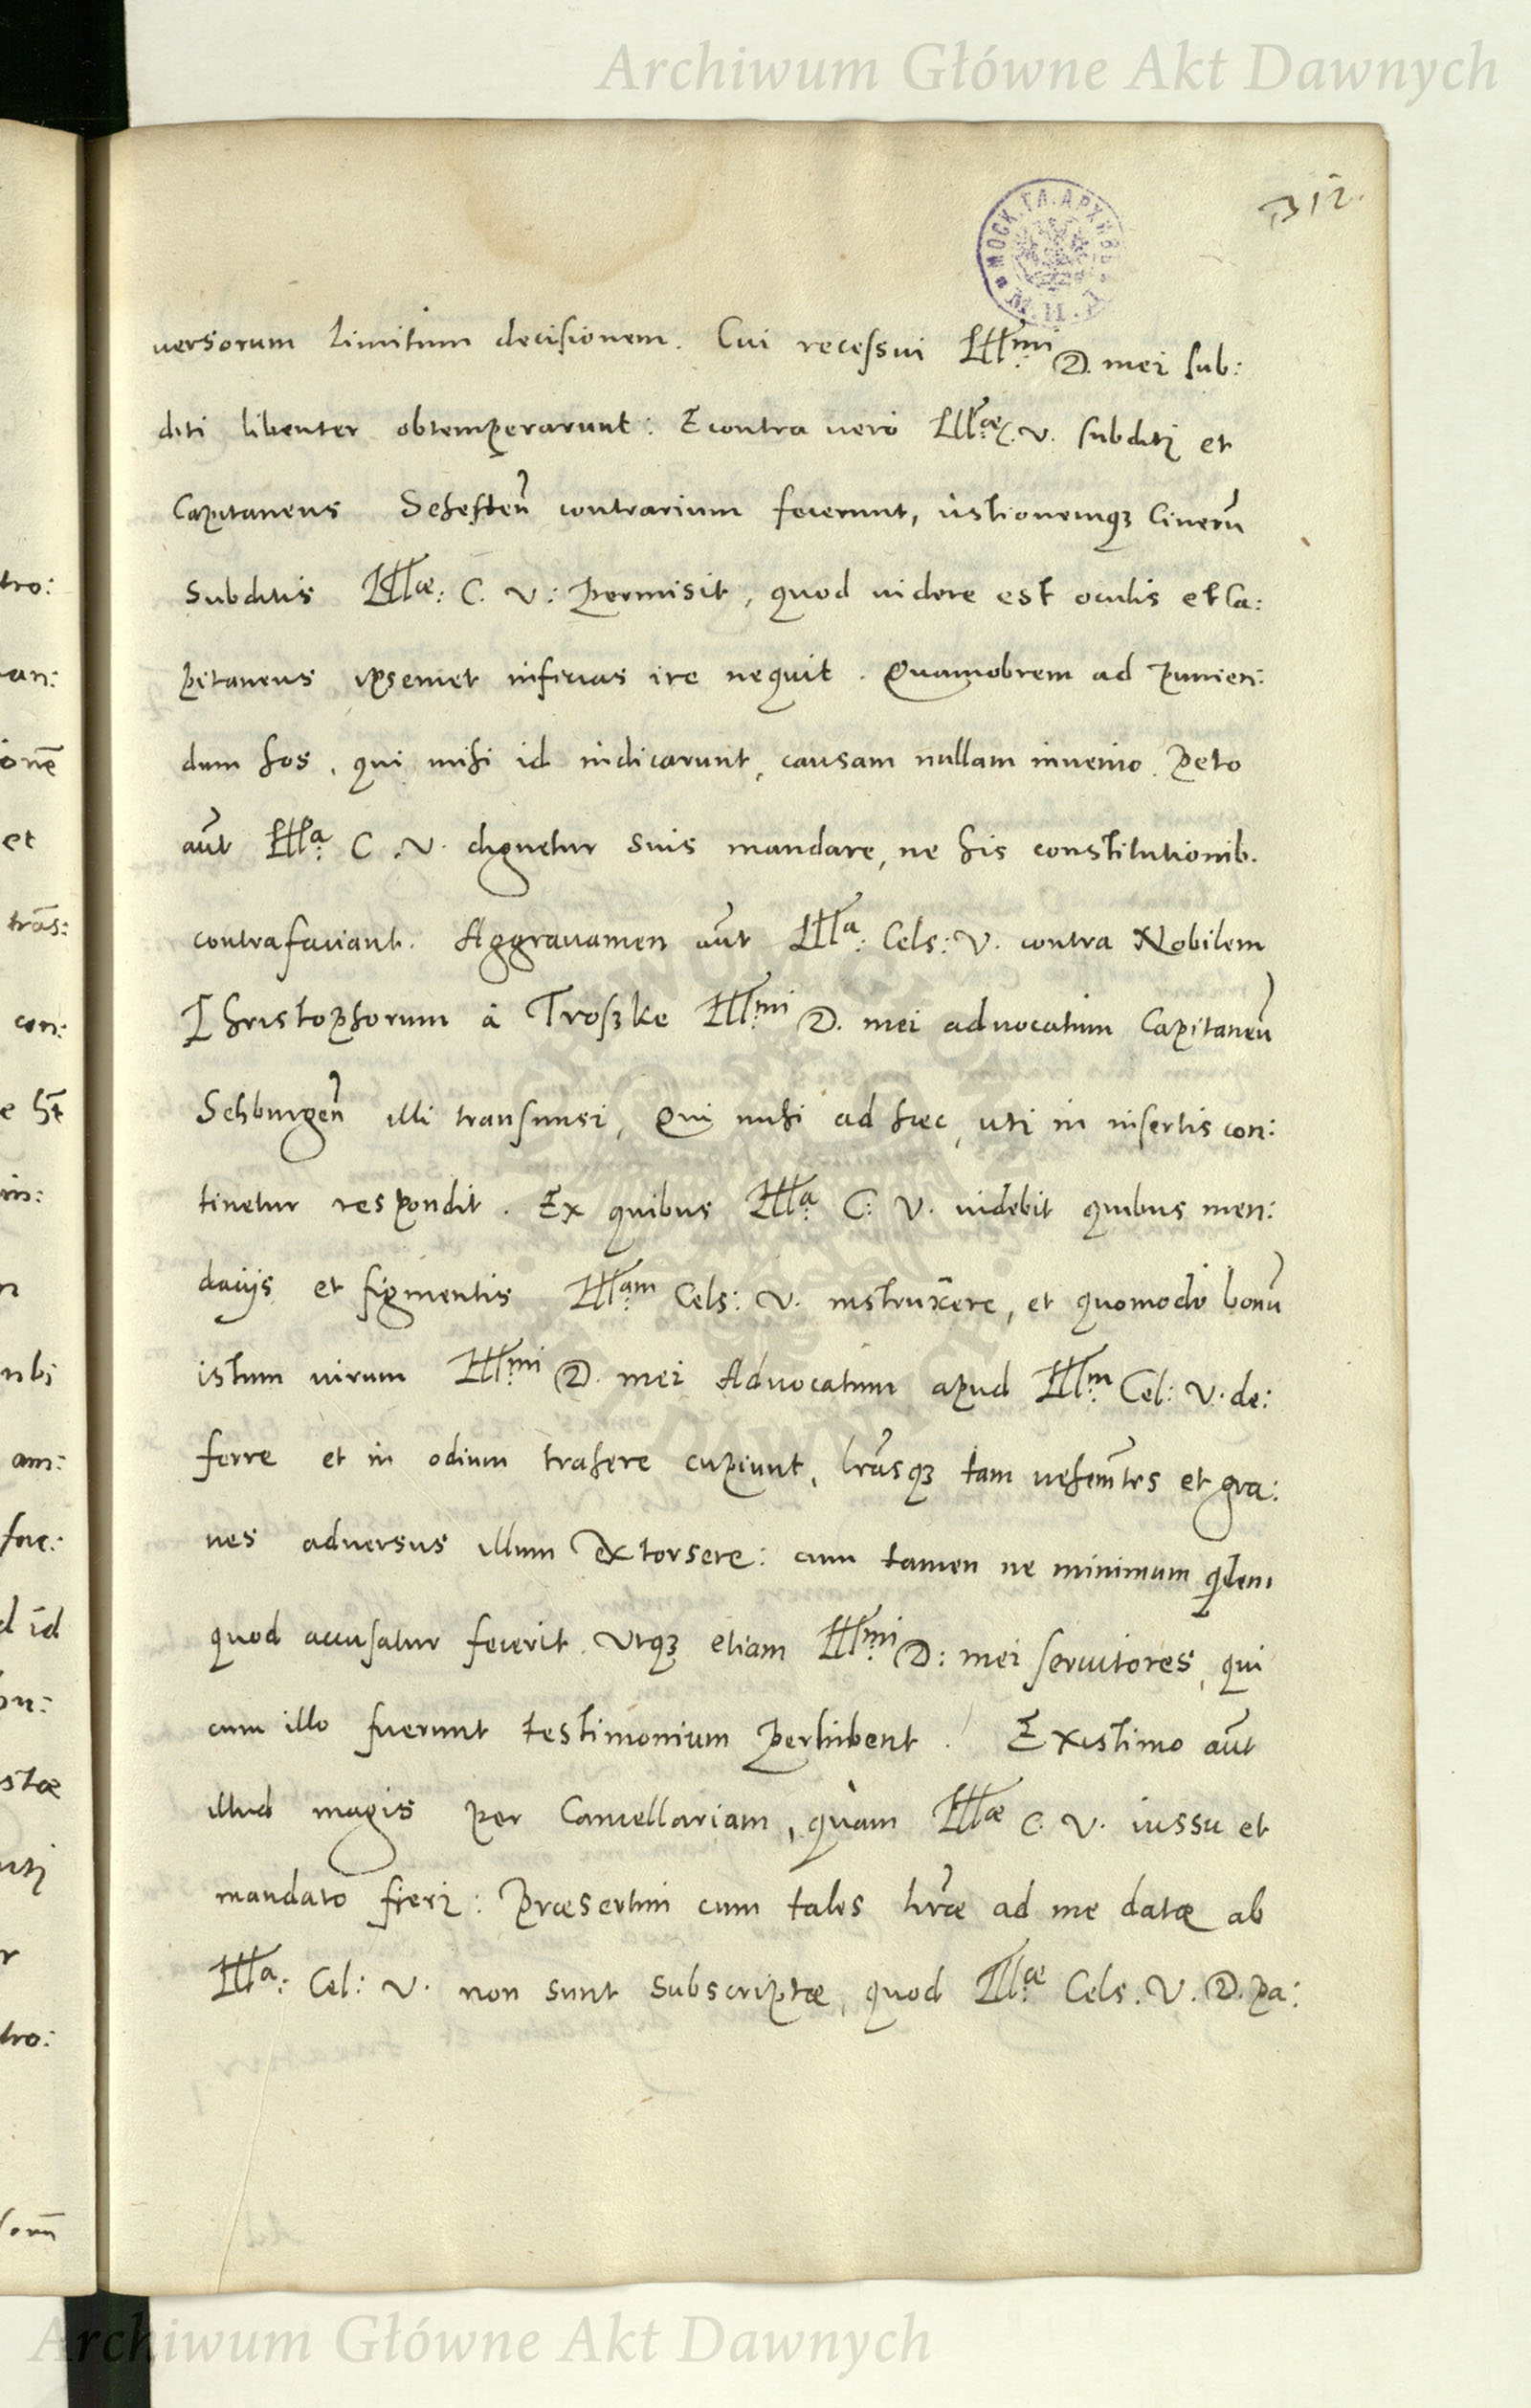 Archiwum Główne Akt Dawnych
312.
МОСК. ГЛ. АРХИВЪ
М. И. Д.
uersorum limitum decisionem. Cui recessui Illmi: D. mei sub:
diti libenter obtemperarunt: Econtra uero Illae: C. V. subditi et
Capitaneus Sehesten̄ contrarium fecerunt, ustionemq3 Cinerū
Subditis Illae: C. V: permisit, quod uidere est oculis et Ca:
pitaneus ipsemet inficias ire nequit. Quamobrem ad punien:
dum hos, qui mihi id indicarunt, causam nullam inuenio. Peto
aūt Illa: C. V. dignetur suis mandare, ne his constitutionib.
contrafaciant. Aggrauamen aūt Illa: Cels: V. contra Nobilem
Christophorum à Troszke Illmi D. mei aduocatum Capitaneū
Sehburgen̄ illi transmisi, Qui mihi ad haec, uti in insertis con:
tinetur respondit. Ex quibus Illa: C: V. uidebit quibus men:
dacijs et figmentis Illam: Cels: V. instruxere, et quomodo bonū
istum uirum Illmi: D. mei Aduocatum apud Illm: Cel: V. de:
ferre et in odium trahere cupiunt, lrāsq3 tam uehemn̄tes et gra:
ues aduersus illum extorsere: cum tamen ne minimum qdem
quod accusatur fecerit. Utq3 etiam Illmi: D: mei seruitores, qui
cum illo fuerunt testimonium perhibent. Existimo aūt
illud magis per Cancellariam, quàm Illae C. V. iussu et
mandato fieri: Praesertim cum tales lrāe ad me datae ab
Illa: Cel: V. non sunt subscriptae, quod Illae: Cels. V. D. pa:
Archiwum Główne Akt Dawnych